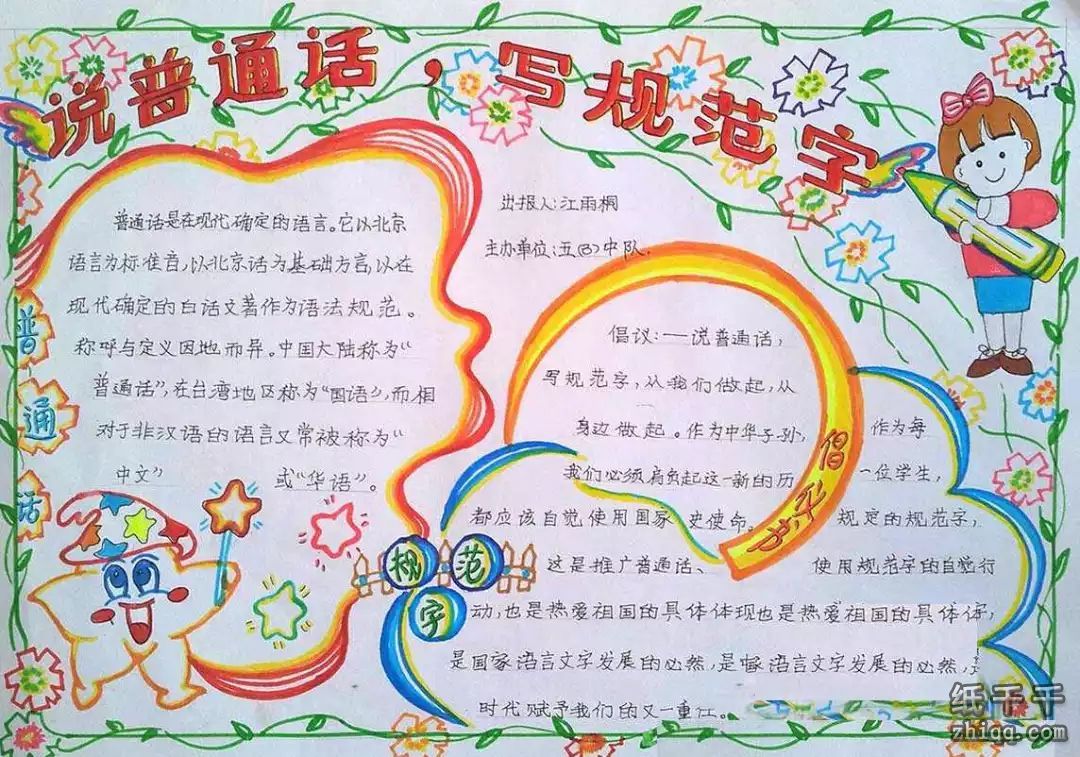 说普通话，写规范字
出报人：江雨桐
主办单位：五（3）中队
普通话是在现代确定的语言。它以北京
语言为标准音，以北京话为基础方言，以在
现代确定的白话文著作为语法规范。
称呼与定义因地而异。中国大陆称为“
普通话”，在台湾地区称为“国语”，而相
对于非汉语的语言又常被称为“
中文” 或“华语”。
普
通
话
规 范
字
倡议：——说普通话，
写规范字，从我们做起，从
身边做起。作为中华子孙， 作为每
我们必须肩负起这一新的历 一位学生，
都应该自觉使用国家 史使命。 规定的规范字，
这是推广普通话、 使用规范字的自觉行
动，也是热爱祖国的具体体现也是热爱祖国的具体体
是国家语言文字发展的必然，是 语言文字发展的必然，
时代赋予我们的又一重任。
倡
纸千千
zhiqq.com